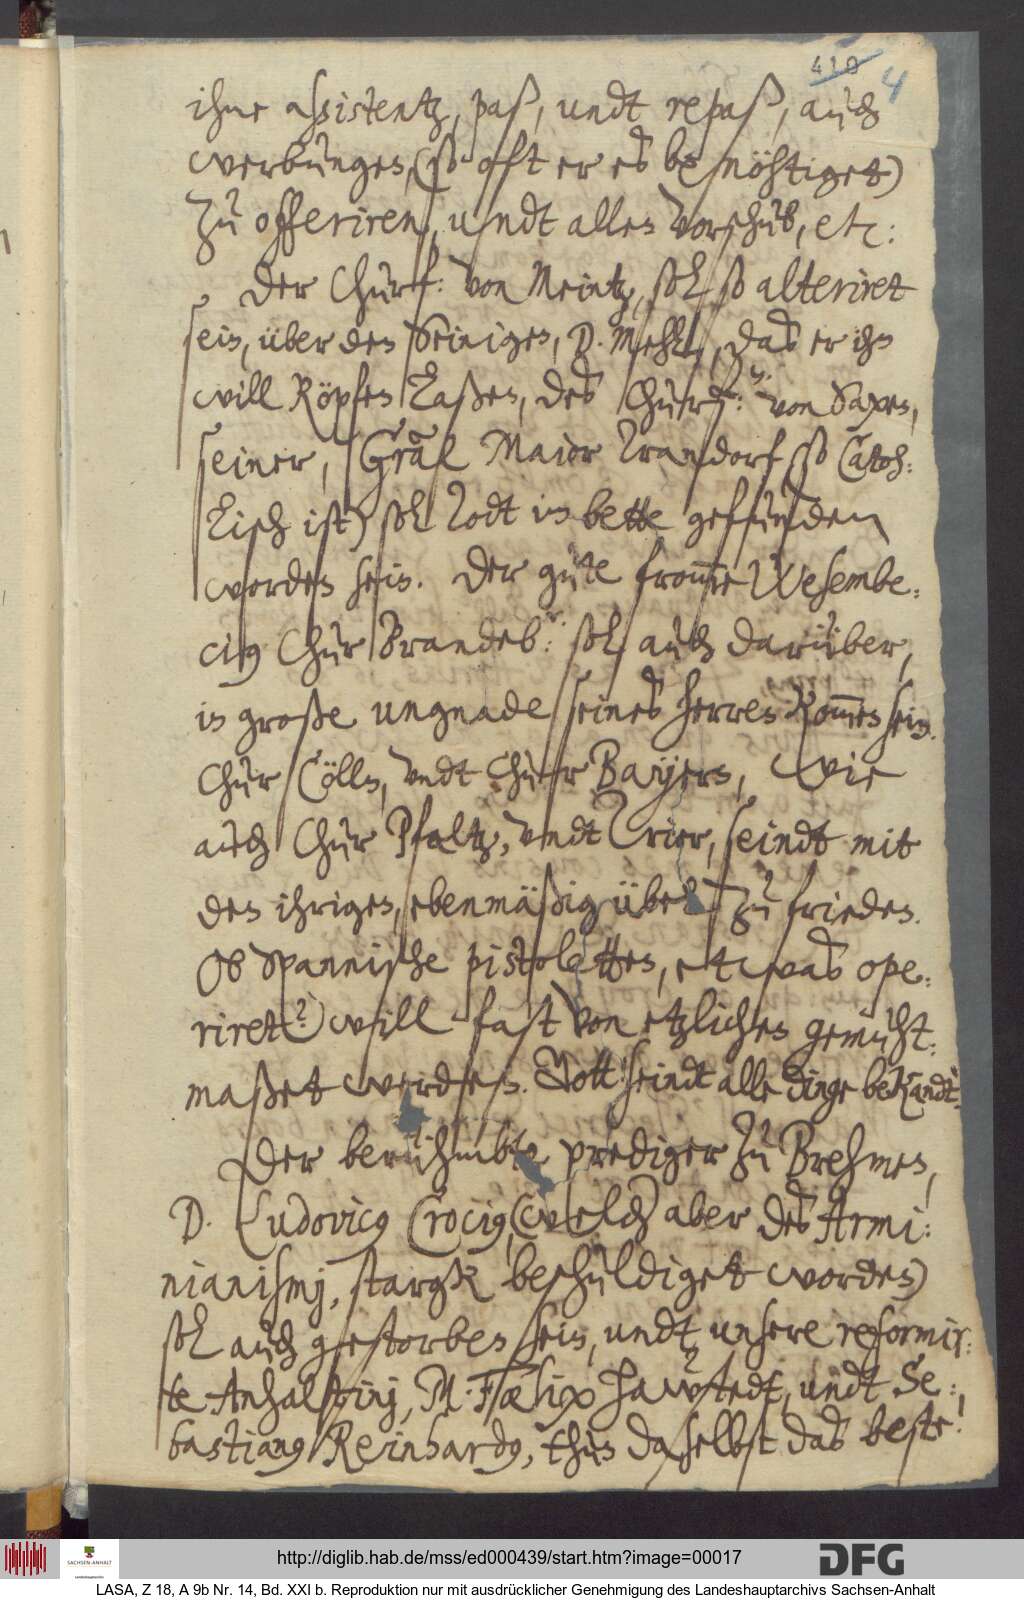 410 4
ihne assistentz, paß, undt repaß, auch
werbungen, (so oft er es benöhtiget)
zu offeriren, undt allen vorschub, etc:
Der Churf: von Meintz, sol so alteriret
sein, über den Seinigen, D. Mehln, das er ihn
will Köpfen laßen, des Churf: von Saxen,
seiner, Gräl Maior Trandorf so Catoh:
lisch ist) sol todt in bette gefunden
worden sein. Der gute fromme Wesembe:
cius Chur Brandeb: sol auch darüber,
in große ungnade seines herren kommen sein.
Chur Cölln, undt Chur Bayern, wie
auch Chur Pfaltz, undt Trier, seindt mit
den ihrigen, ebenmäßig übel zu frieden.
Ob Spannische pistoletten, etwas ope:
riret? will fast von etzlichen gemuht:
maßet werden. Gott seindt alle dinge bekandt.
Der berühmbte prediger zu Brehmen,
D. Ludovicus Crocius, (welch aber des Armi:
nianismj, starck beschuldiget worden)
sol auch gestorben sein, undt unsere reformir:
te Anhaltinj, M. Fælix Hawstedt, undt Se:
bastianus Reinhardus, thun daselbst das beste!
http://diglib.hab.de/mss/ed000439/start.htm?image=00017
SACHSEN-ANHALT
DFG
LASA, Z 18, A 9b Nr. 14, Bd. XXI b. Reproduktion nur mit ausdrücklicher Genehmigung des Landeshauptarchivs Sachsen-Anhalt